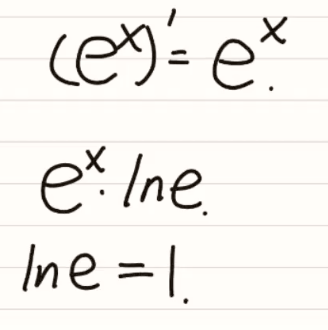 (eˣ)′ = eˣ.
eˣ · ln e.
ln e = 1.